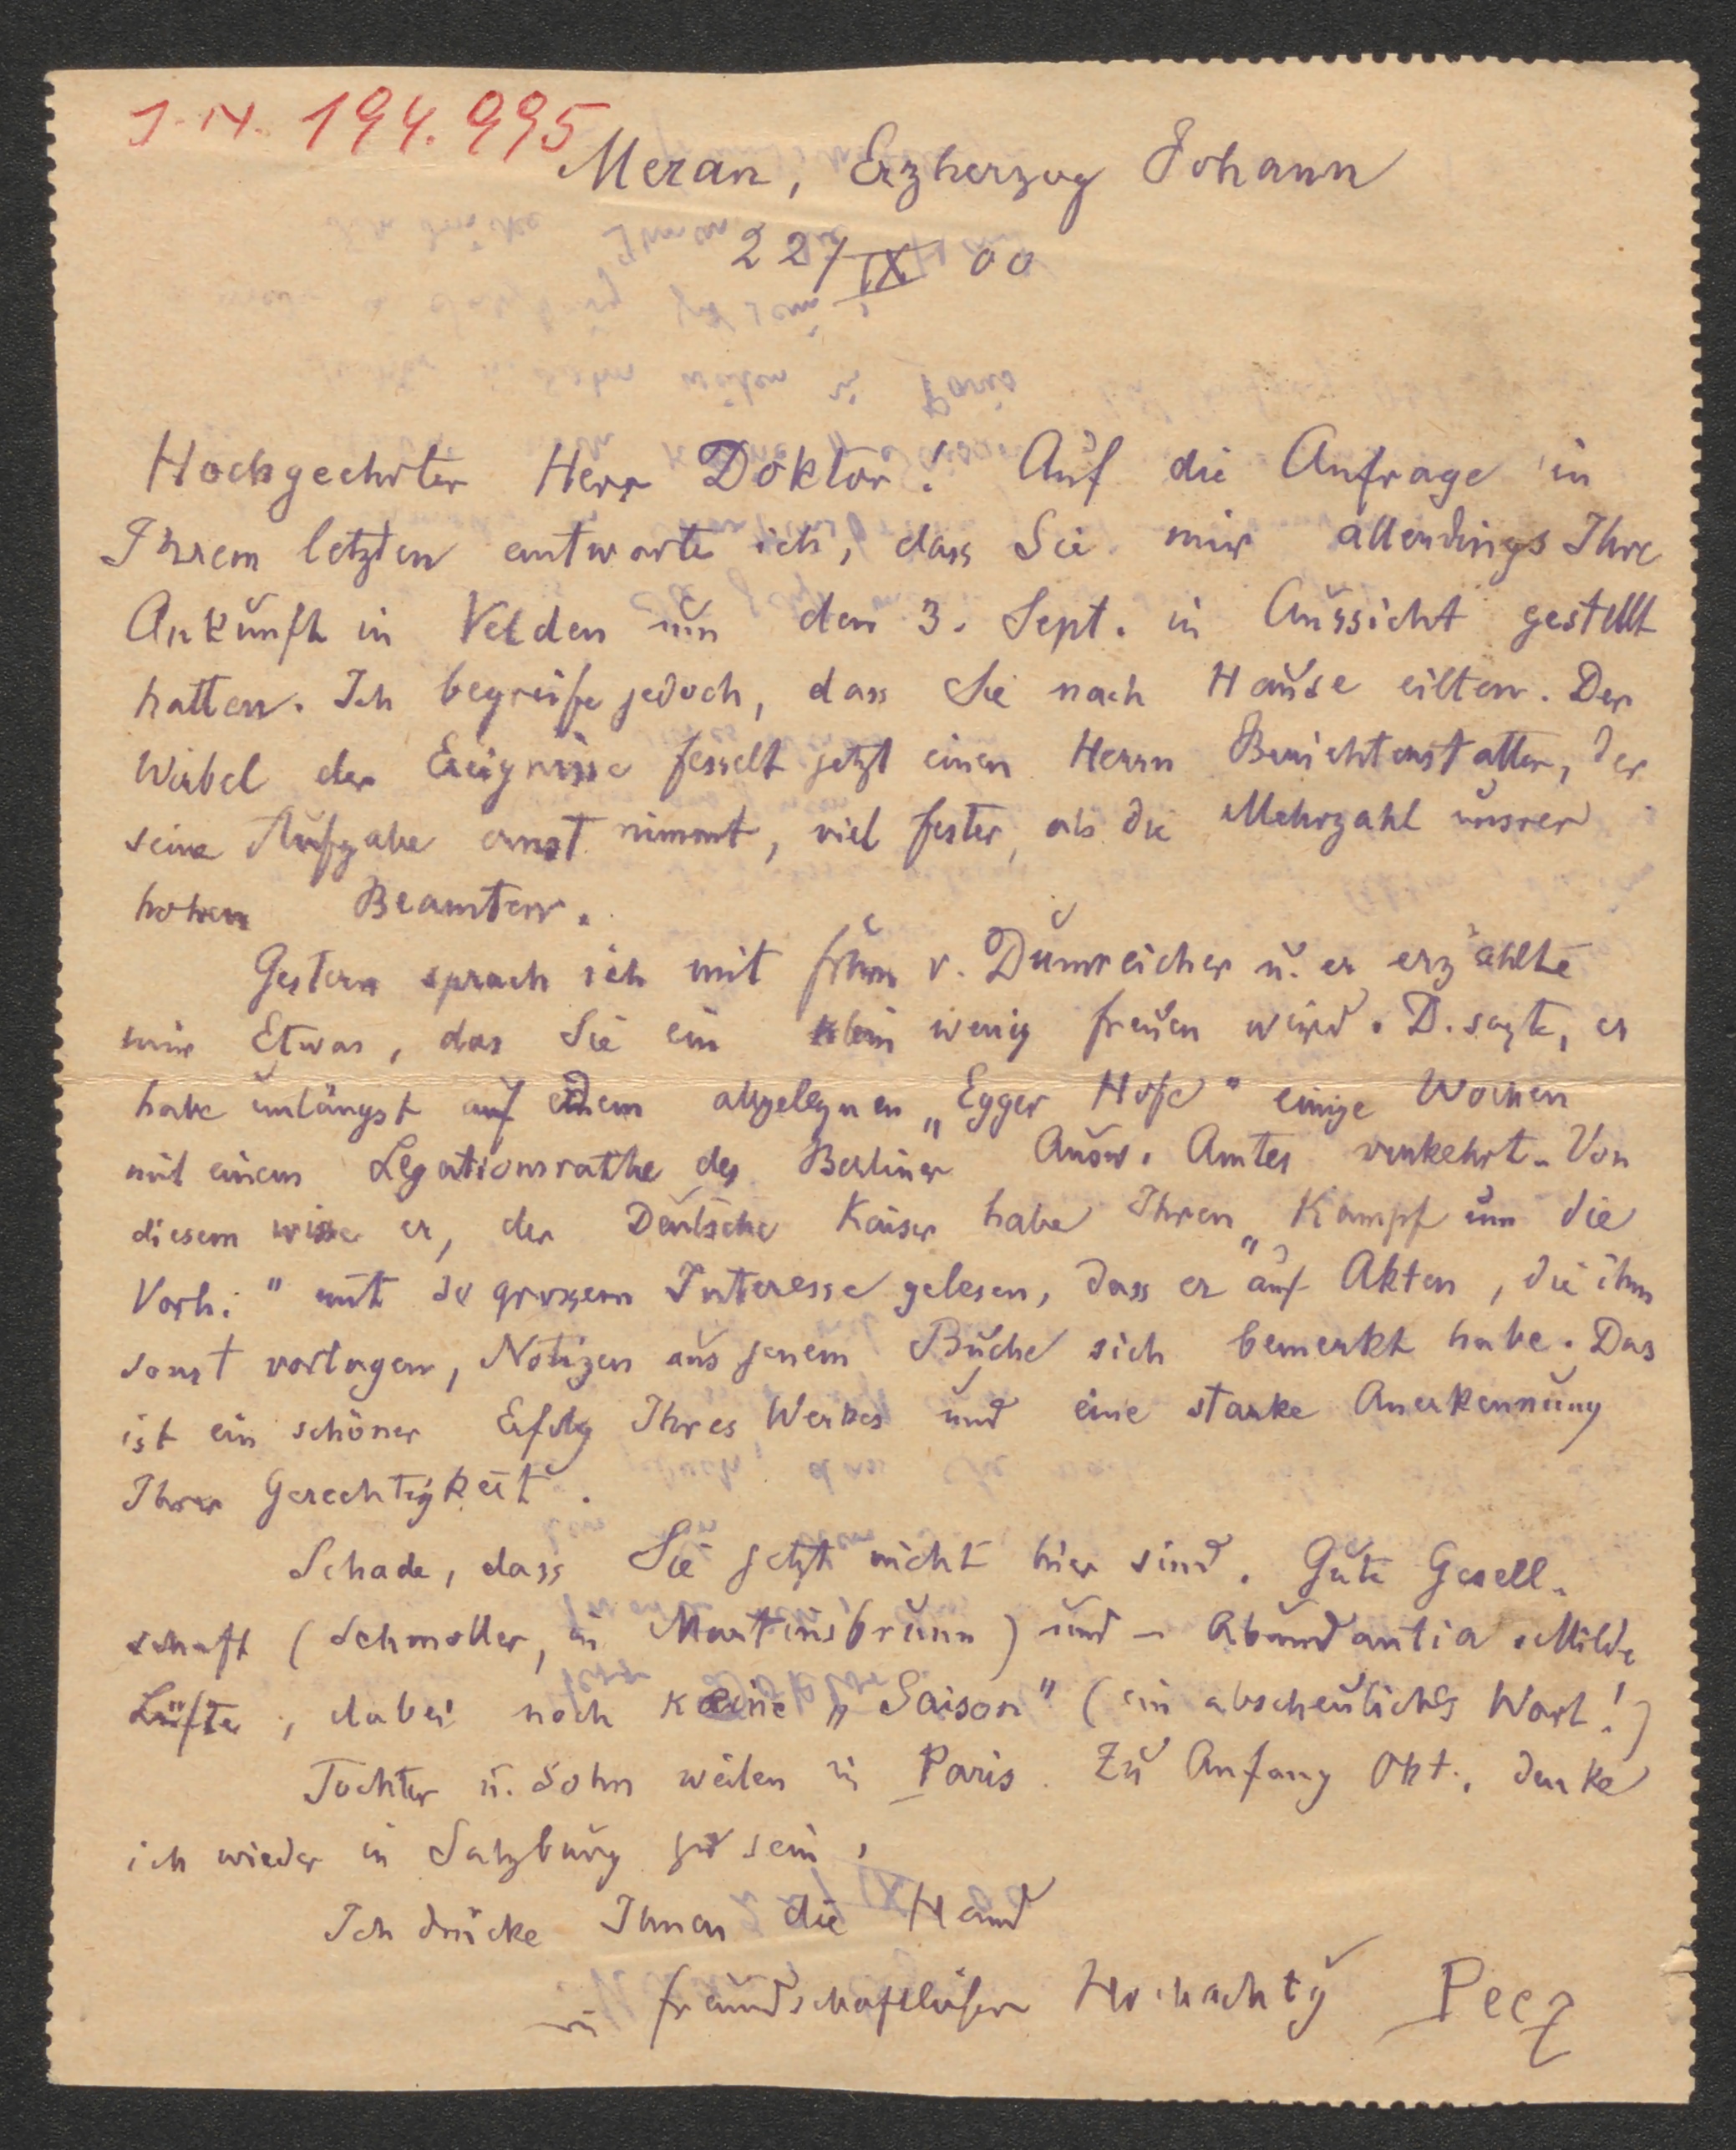 J.N. 194.995
Meran, Erzherzog Johann
22/IX 00
Hochgeehrter Herr Doktor! Auf die Anfrage in
Ihrem letzten antworte ich, dass Sie mir allerdings Ihre
Ankunft in Velden um den 3. Sept. in Aussicht gestellt
hatten. Ich begreife jedoch, dass Sie nach Hause eilten. Der
Wirbel der Ereignisse fesselt jetzt einen Herrn Berichterstatter, der
seine Aufgabe ernst nimmt, viel fester, als die Mehrzahl unsrer
hohen Beamten.
Gestern sprach ich mit frhrn v. Dumreicher u. er erzählte
mir Etwas, das Sie ein klein wenig freuen wird. D. sagte, er
habe unlängst auf dem abgelegnen „Egger Hofe" einige Wochen
mit einem Legationsrathe des Berliner Ausw. Amtes verkehrt. Von
diesem wisse er, der Deutsche Kaiser habe Ihren „Kampf um die
Vorh." mit so grossem Interesse gelesen, dass er auf Akten, die ihm
sonst vorlagen, Notizen aus jenem Buche sich bemerkt habe. Das
ist ein schöner Erfolg Ihres Werkes und eine starke Anerkennung
Ihrer Gerechtigkeit.
Schade, dass Sie jetzt nicht hier sind. Gute Gesell-
schaft (Schmoller, in Martinsbrunn) und – Abundantia. Milde
Lüfte, dabei noch keine „Saison" (ein abscheuliches Wort!)
Tochter u. Sohn weilen in Paris. Zu Anfang Okt. denke
ich wieder in Salzburg zu sein.
Ich drücke Ihnen die Hand
in freundschaftlicher Hochachtg Peez